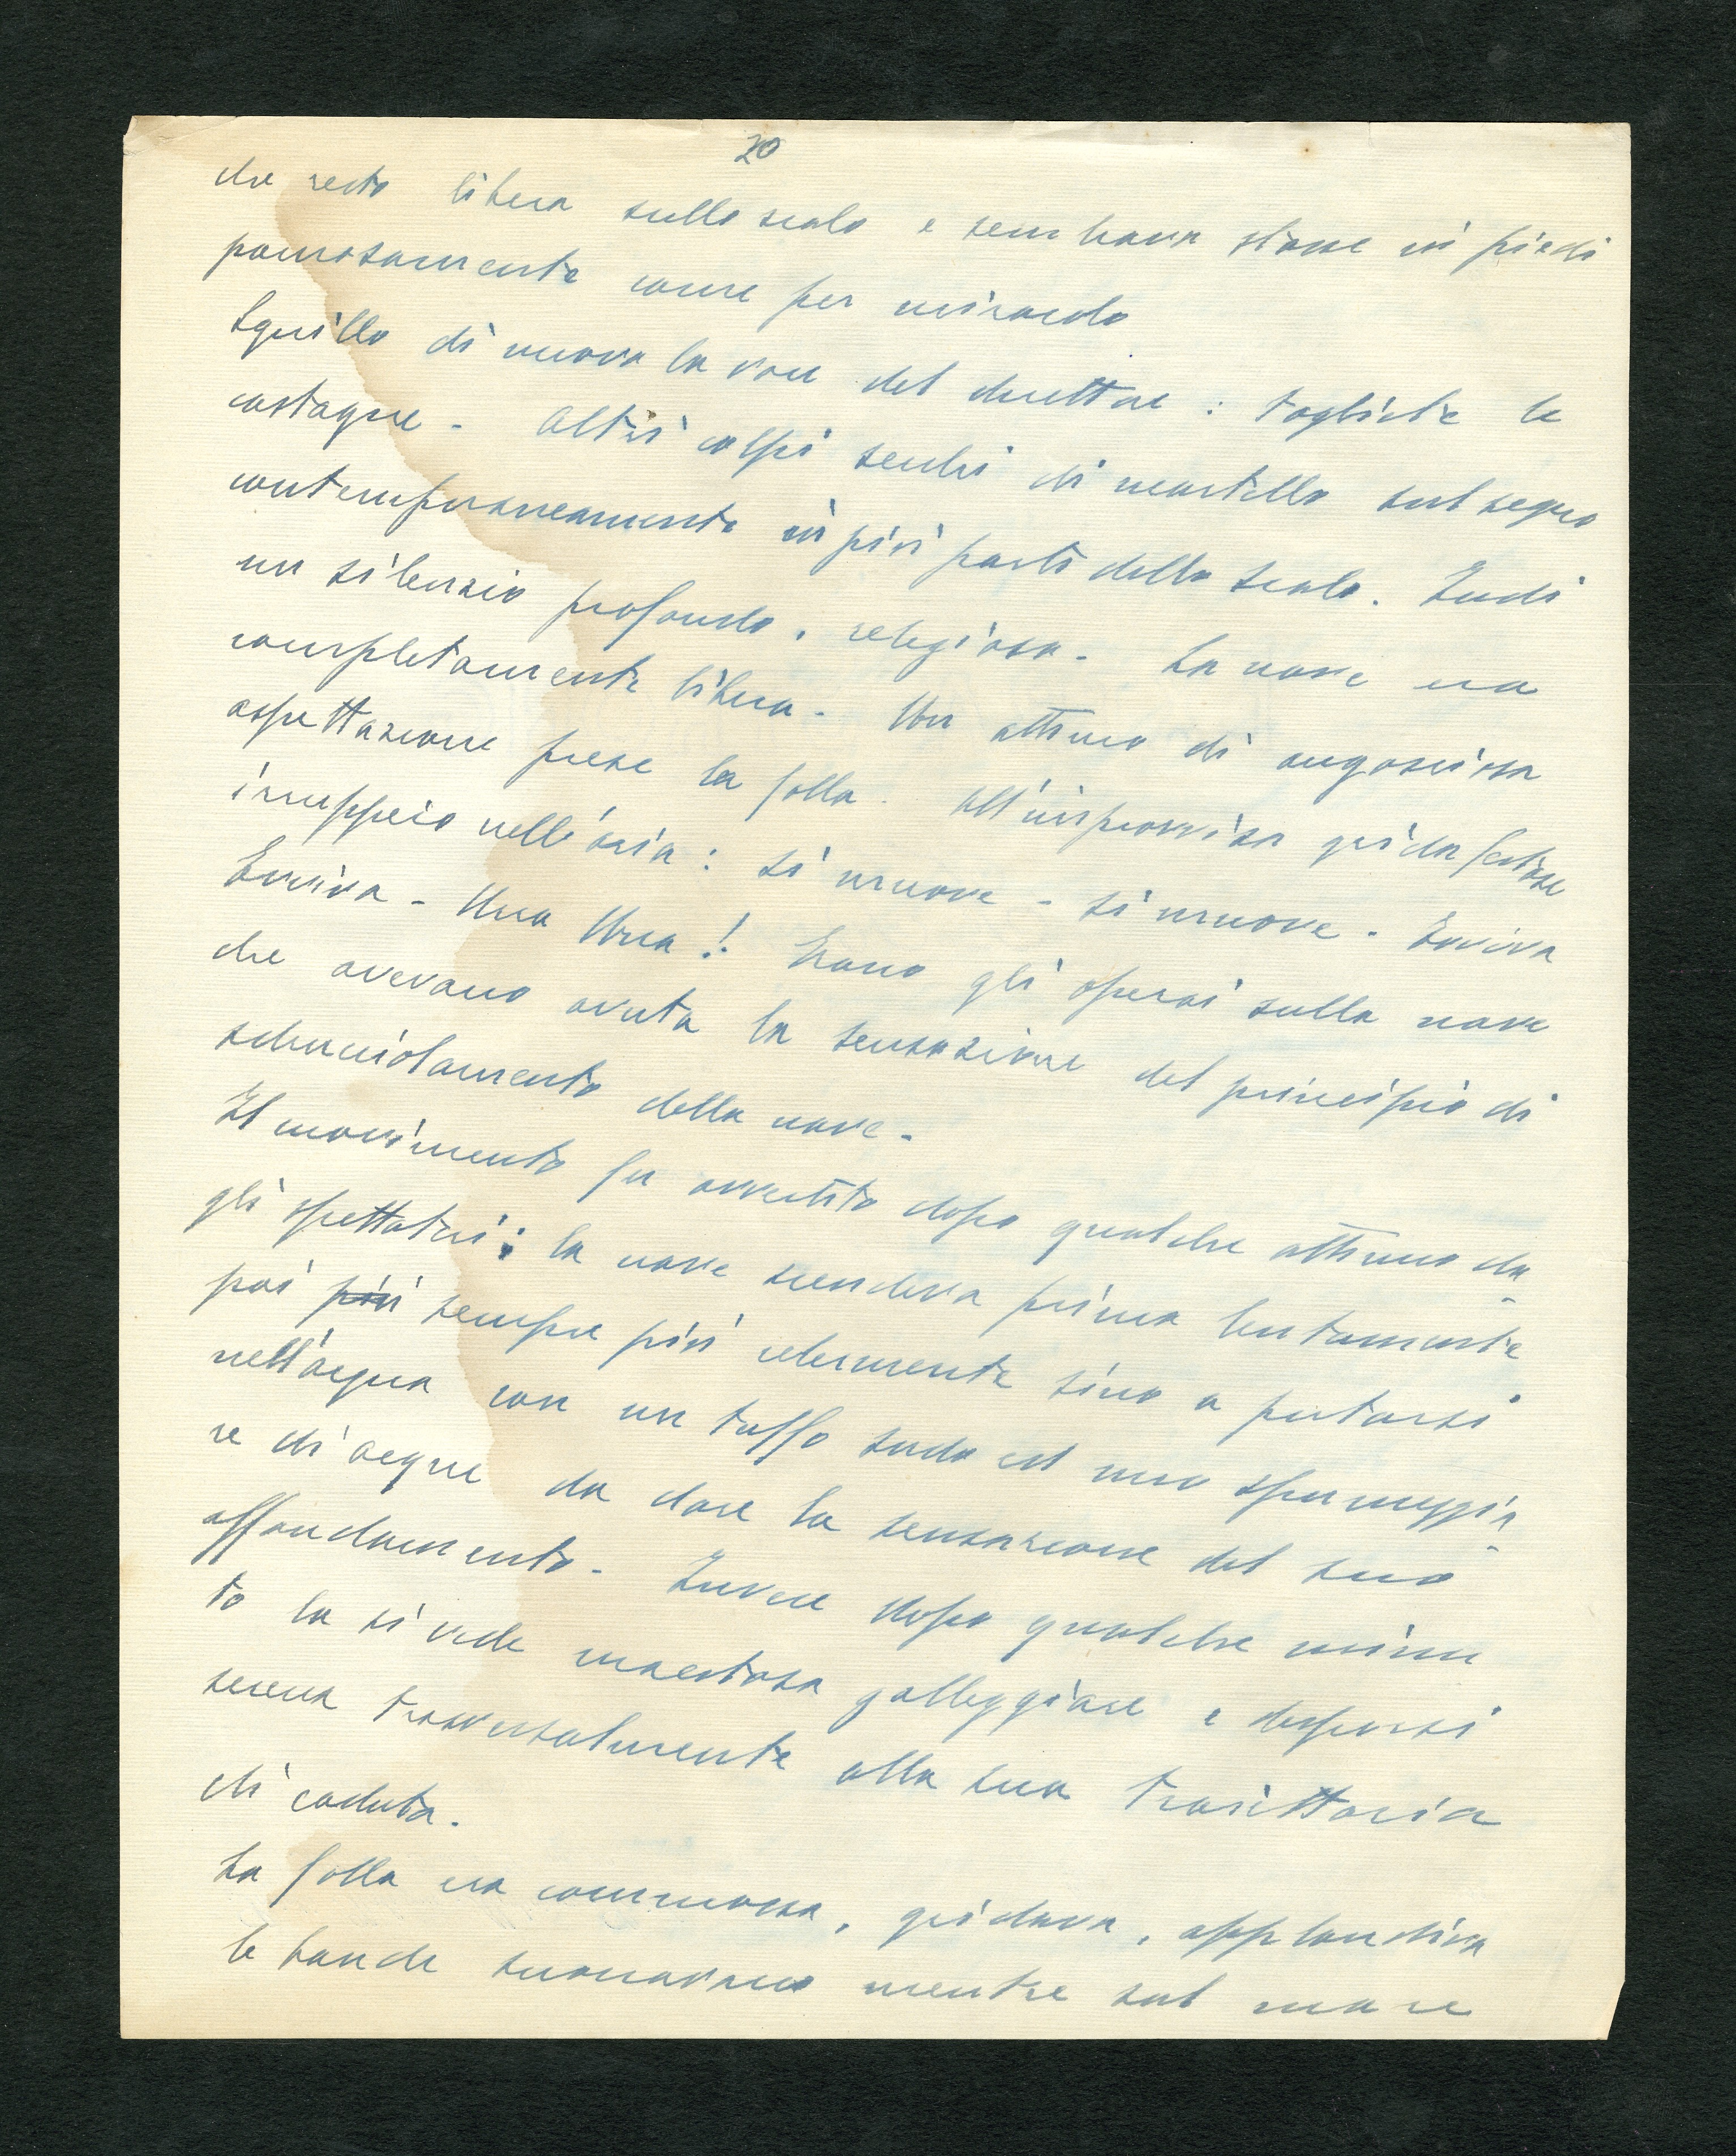 20
che restò libera sullo scalo e sembrava stare in piedi
paurosamente come per miracolo
Squillò di nuovo la voce del direttore : togliete le
castagne - Altri colpi secchi di martello sul legno
contemporaneamente in più parti dello scalo. Indi
un silenzio profondo, religioso - La nave era
completamente libera - Un attimo di angosciosa
aspettazione prese la folla. All'improvviso grida festose
irruppero nell'aria : si muove - si muove - Evviva
Evviva - Urra Urra ! Erano gli operai sulla nave
che avevano avuta la sensazione del principio di
sdrucciolamento della nave -
Il movimento fu avvertito dopo qualche attimo da-
gli spettatori : la nave scendeva prima lentamente
poi più sempre più celermente sino a portarsi
nell'acqua con un tuffo sordo ed uno spumeggia-
re di acque da dare la sensazione del suo
affondamento - Invece dopo qualche minu
to la si vide maestosa galleggiare e disporsi
serena trasversalmente alla sua traiettoria
di caduta.
La folla era commossa, gridava, applaudiva
le bande suonavano mentre sul mare